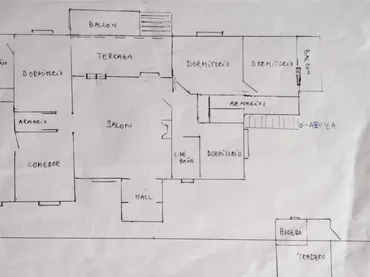 BALCON
TERCAZA
DORMITORIO
DORMITORIO
DORMITORIO
BALCON
ÑO
ARMARIOS
ARMARIO
SALON
AZOTEA
COMEDOR
C. DE
BAÑO
DORMITORIO
HALL
BODEGA